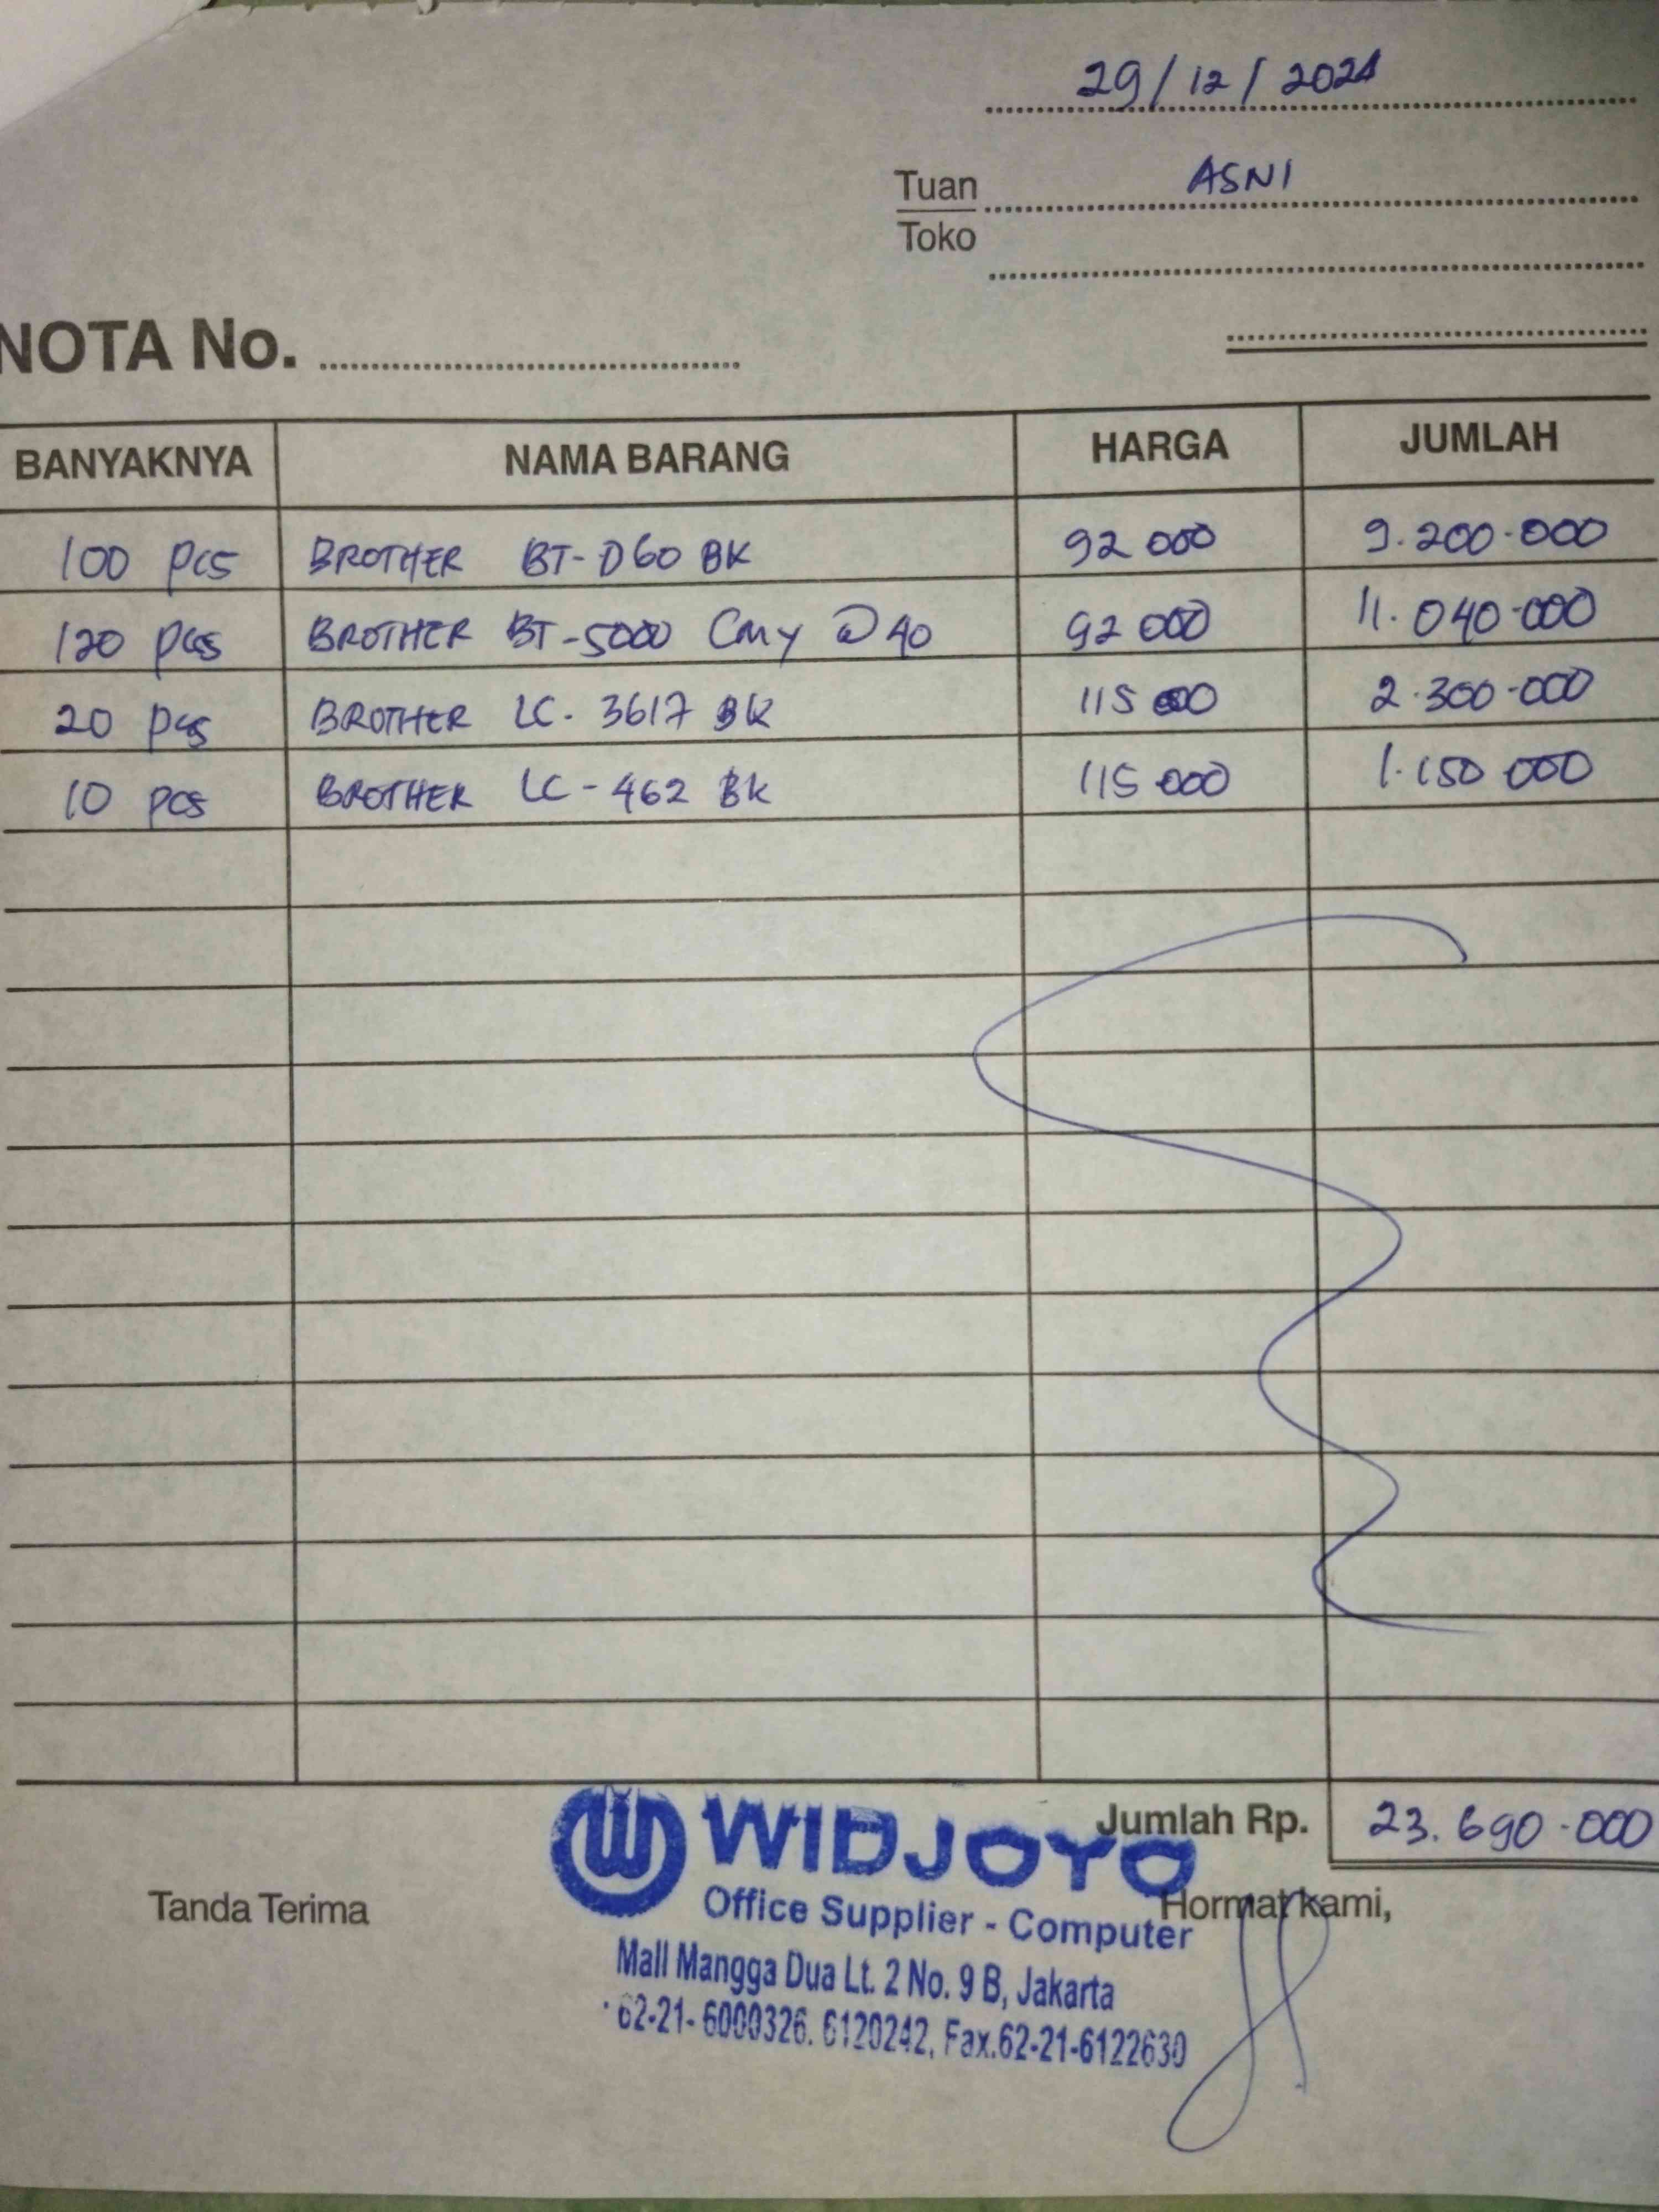 29/12/2021
Tuan ASNI
Toko
NOTA No.
BANYAKNYA NAMA BARANG HARGA JUMLAH
100 pcs BROTHER BT-D60 BK 92 000 9.200.000
120 pcs BROTHER BT-5000 CMY @40 92 000 11.040.000
20 pcs BROTHER LC-3617 BK 115 000 2.300.000
10 pcs BROTHER LC-462 BK 115 000 1.150 000
Jumlah Rp. 23.690.000
Tanda Terima
Hormat kami,
WIDJOYO
Office Supplier - Computer
Mall Mangga Dua Lt. 2 No. 9 B, Jakarta
62-21- 6000326. 6120242, Fax.62-21-6122630